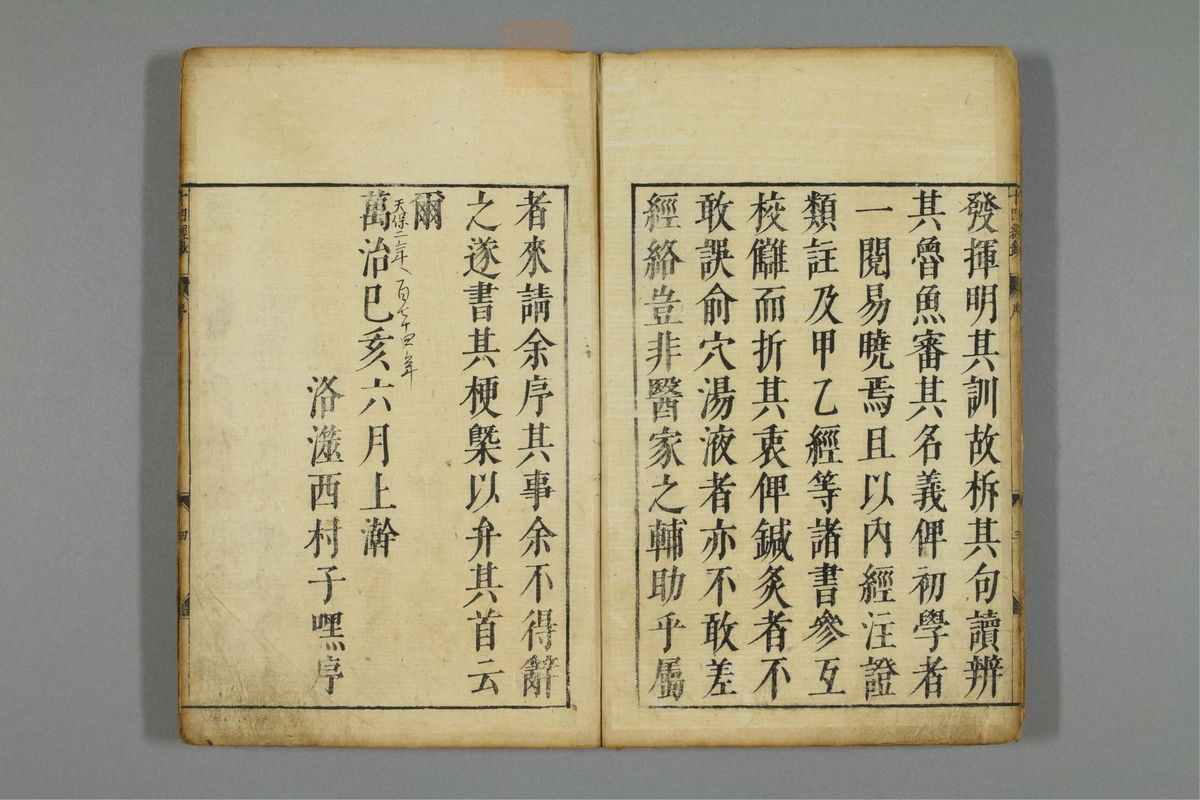 發揮明其訓故柝其句讀辨
其魯魚審其名義俾初學者
一閱易曉焉且以內經注證
類註及甲乙經等諸書參互
校讎而折其衷俾鍼灸者不
敢誤俞穴湯液者亦不敢差
經絡豈非醫家之輔助乎屬
者來請余序其事余不得辭
之遂書其梗槩以弁其首云
爾
天保二年 百七十四年
萬治己亥六月上澣
洛澨西村子嘿序